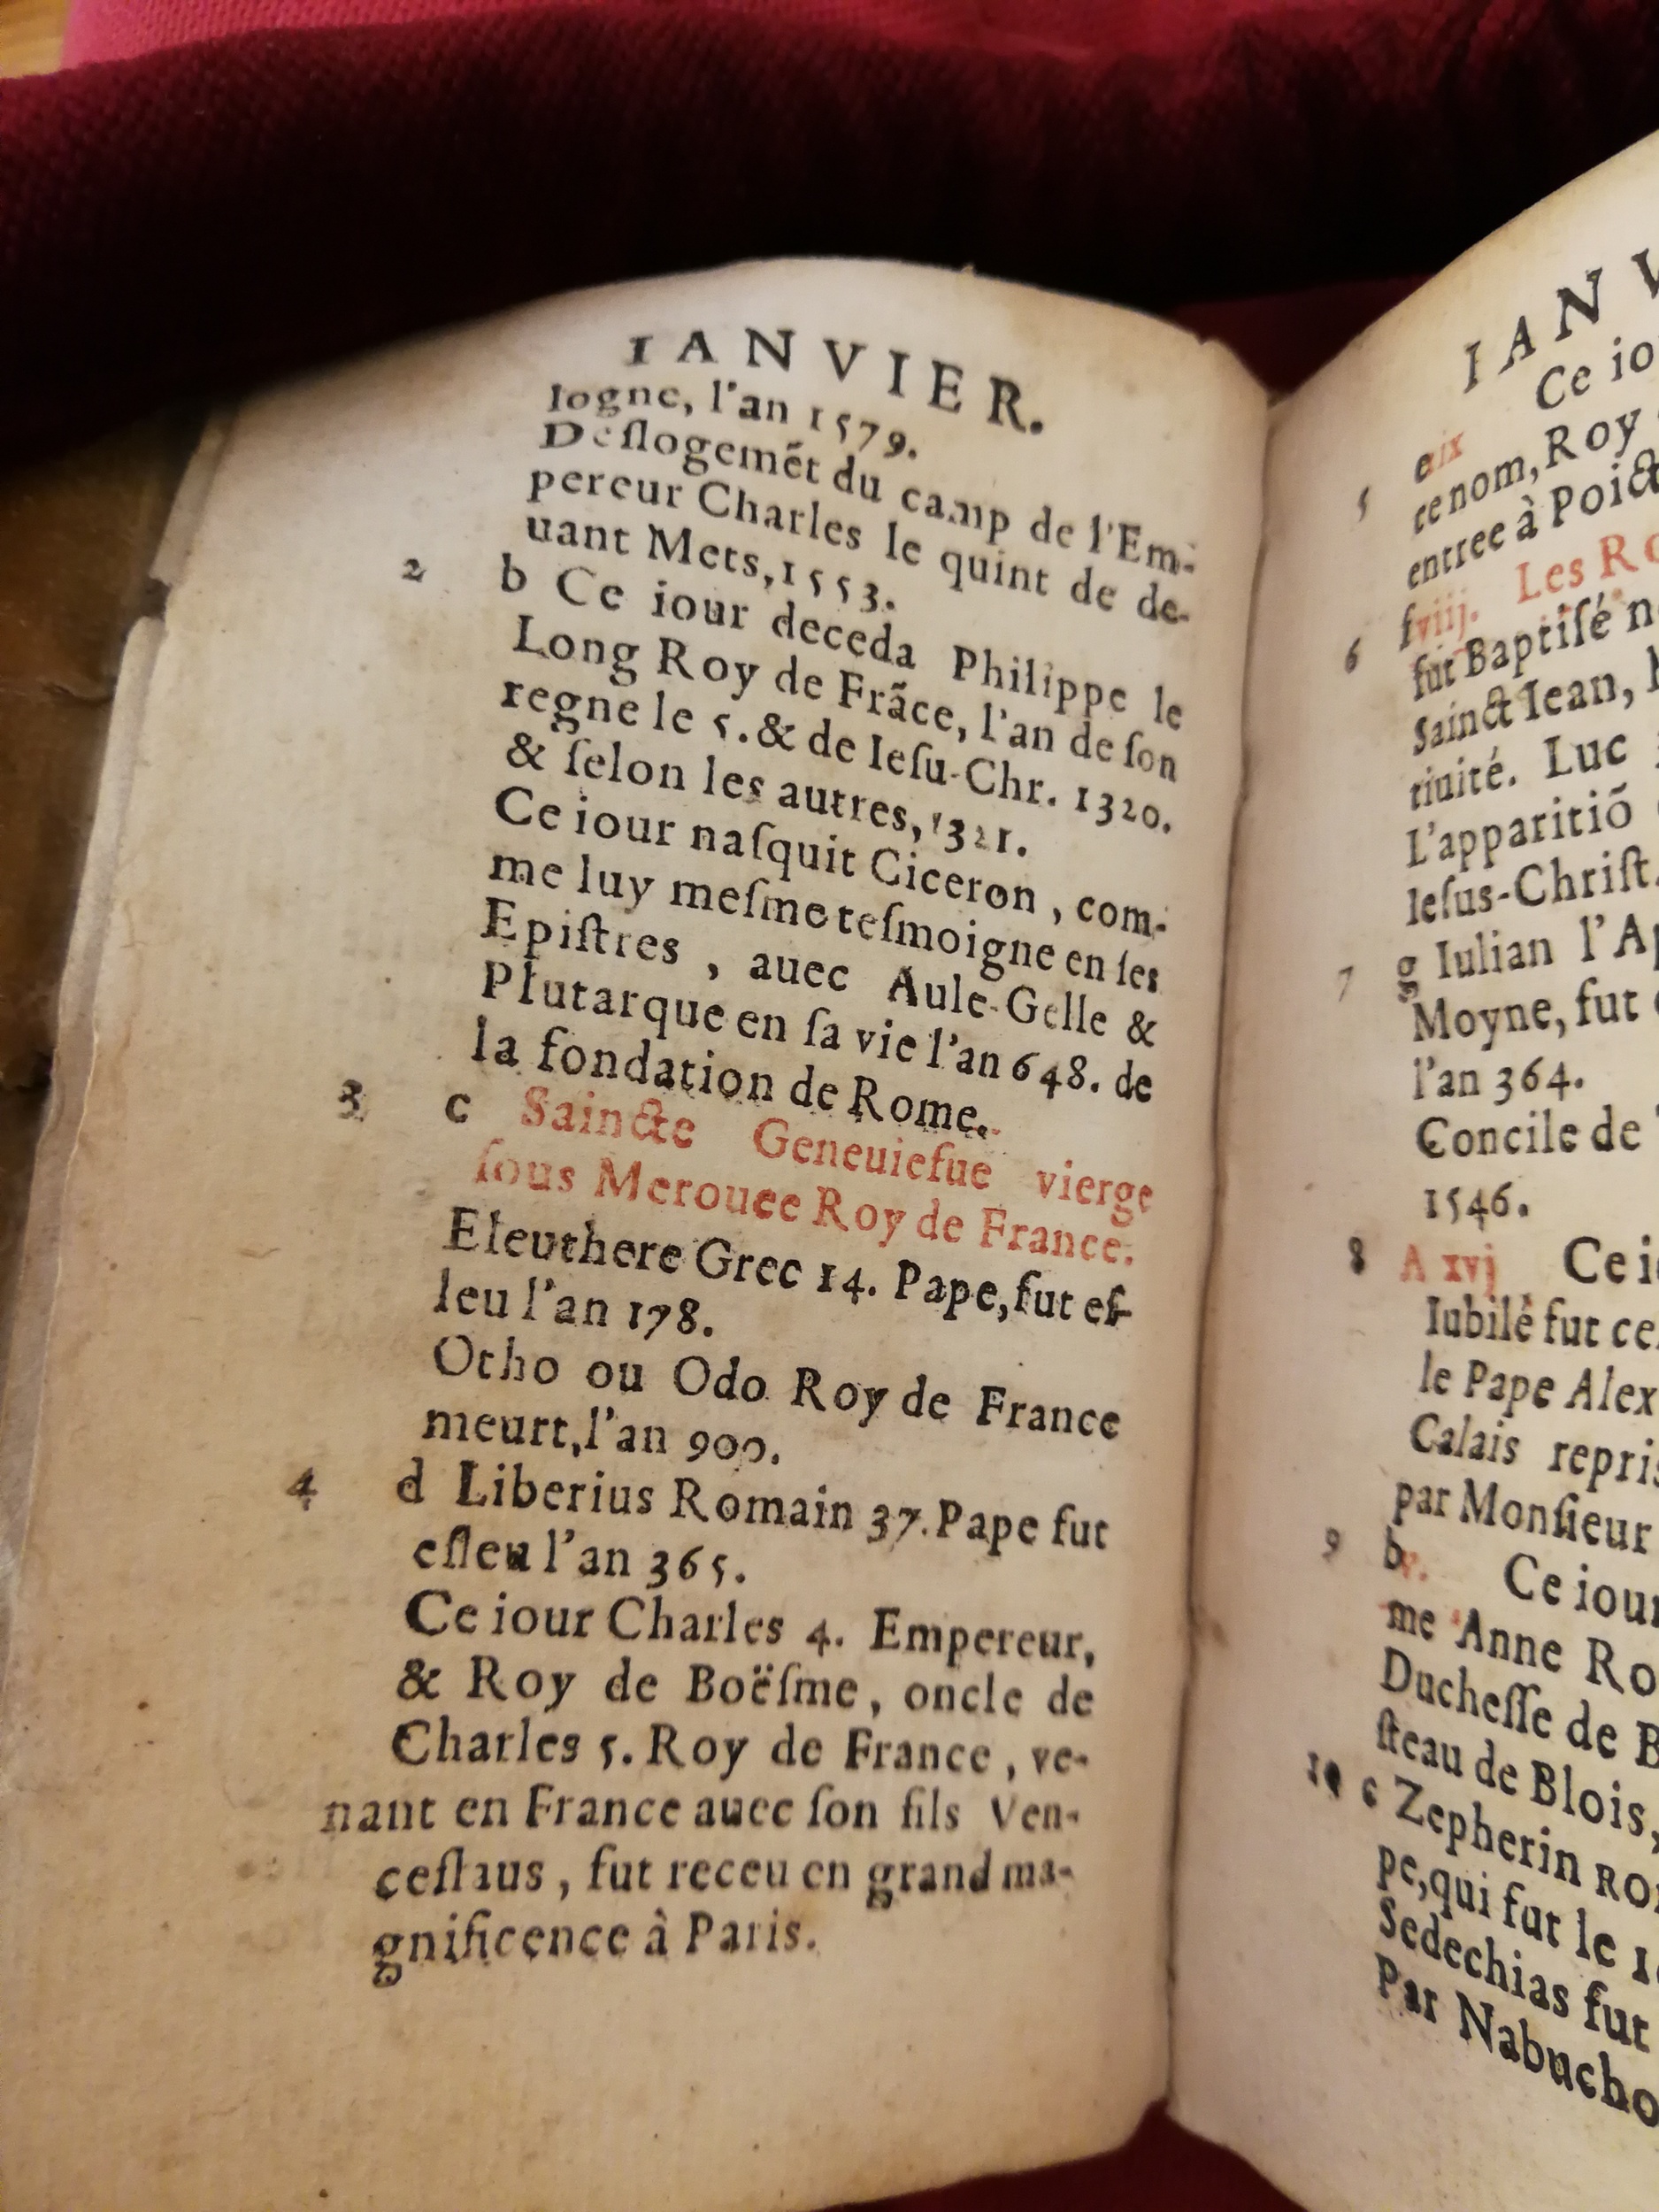 IANVIER.
logne, l'an 1579.
Deſlogemẽt du camp de l'Em-
pereur Charles le quint de de-
uant Mets, 1553.
2 b Ce iour deceda Philippe le
Long Roy de Frãce, l'an de ſon
regne le 5. & de Ieſu-Chr. 1320.
& ſelon les autres, 1321.
Ce iour naſquit Ciceron, com-
me luy meſme teſmoigne en ſes
Epiſtres, auec Aule-Gelle &
Plutarque en ſa vie l'an 648. de
la fondation de Rome.
3 c Saincte Geneuieſue vierge
ſous Merouee Roy de France.
Eleuthere Grec 14. Pape, fut eſ-
leu l'an 178.
Otho ou Odo Roy de France
meurt, l'an 900.
4 d Liberius Romain 37. Pape fut
eſleu l'an 365.
Ce iour Charles 4. Empereur,
& Roy de Boëſme, oncle de
Charles 5. Roy de France, ve-
nant en France auec ſon fils Ven-
ceſlaus, fut receu en grand ma-
gnificence à Paris.
IANV
5 e ix Ce io
ce nom, Roy
entree à Poict
6 f viij. Les Ro
fut Baptiſé n
Sainct Iean,
tiuité. Luc
L'apparitiõ
Ieſus-Chriſt.
7 g Iulian l'Ap
Moyne, fut
l'an 364.
Concile de
1546.
8 A xvj Ce i
Iubilé fut ce
le Pape Alex
Calais repris
par Monſieur
9 b v. Ce iour
me Anne Ro
Ducheſſe de B
ſteau de Blois,
10 c Zepherin Ro
pe, qui fut le 1
Sedechias fut
Par Nabucho